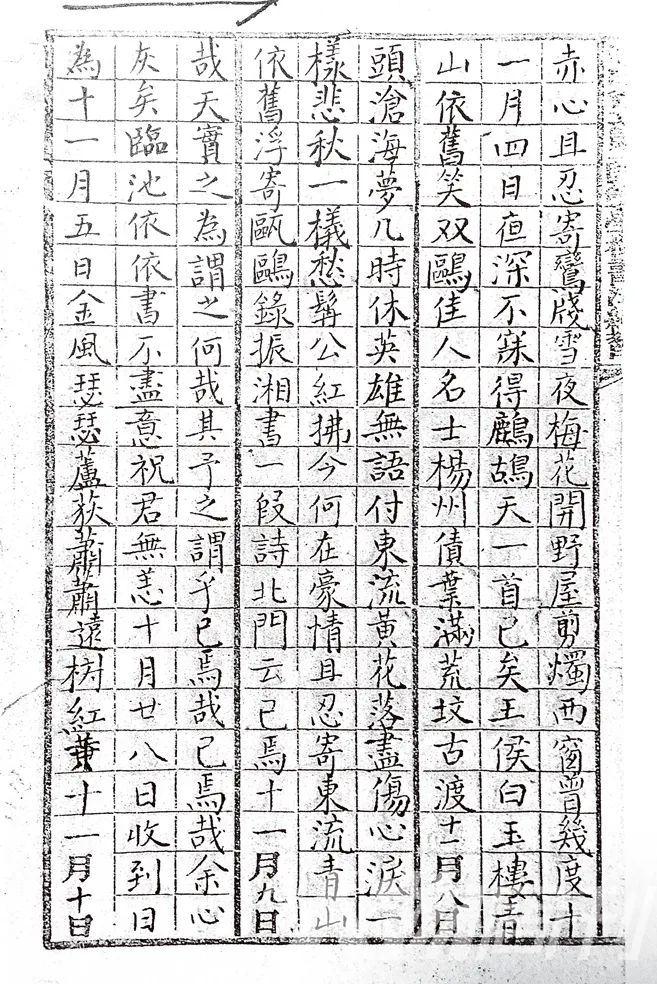 赤心且忍寄鸞牋雪夜梅花開野屋剪燭西窗曾幾度十
一月四日亱深不寐得鷓鴣天一首已矣王侯白玉樓青
山依舊笑双鷗佳人名士楊州債葉滿荒坟古渡十一月八日
頭滄海夢几時休英雄無語付東流黃花落盡傷心淚一
樣悲秋一樣愁髯公紅拂今何在豪情且忍寄東流青山
依舊浮寄甌鷗錄振湘書一段詩北門云已焉十一月九日
哉天實之為謂之何哉其予之謂乎已焉哉已焉哉余心
灰矣臨池依依書不盡意祝君無恙十月廿八日收到日
為十一月五日金風瑟瑟蘆荻蕭蕭遠樹紅黄十一月十日